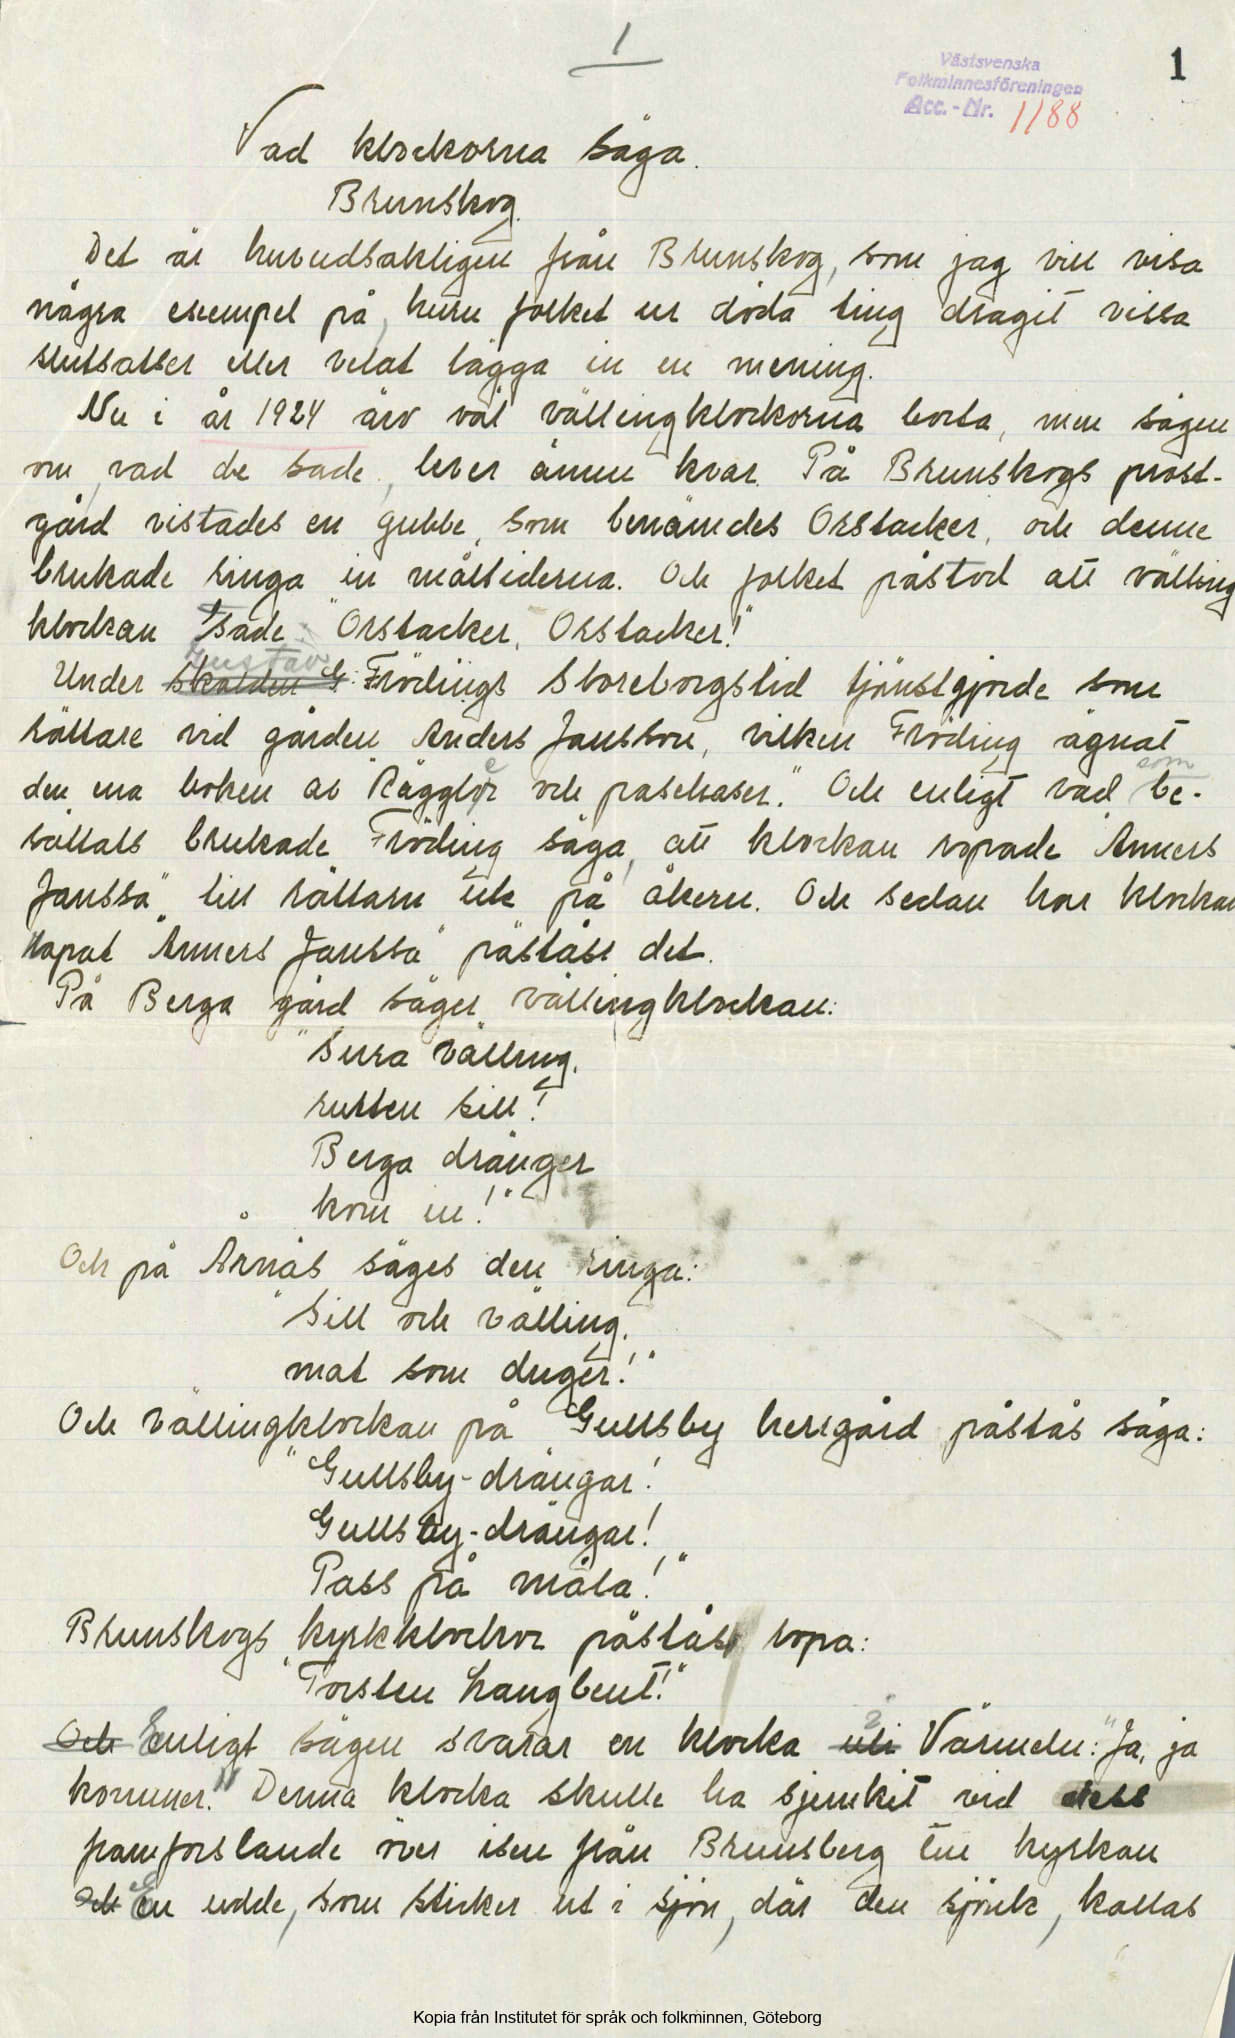 1
1
Västsvenska
Folkminnesföreningen
Acc.-Nr. 1188
Vad klockorna säga.
Brunskog.
Det är huvudsakligen från Brunskog, som jag vill visa
några exempel på, huru folket ur döda ting dragit vissa
slutsatser eller velat lägga in en mening.
Nu i år 1924 äro väl vällingklockorna borta, men sägen
om, vad de sade, lever ännu kvar. På Brunskogs prost-
gård vistades en gubbe, som benämdes Orstacker, och denne
brukade ringa in måltiderna. Och folket påstod att välling
klockan sade: "Orstacker, Orstacker!"
Gustav
Under skalden G. Frödings Storeborgstid tjänstgjorde som
rättare vid gården Anders Jansson, vilken Fröding ägnat
som
den ena boken av "Räggler och paschaser." Och enligt vad be-
rättats brukade Fröding säga, att klockan ropade "Anners
Janssa" till rättarn ute på åkern. Och sedan har klockan
ropat "Anners Janssa" påstås det.
På Berga gård säger vällingklockan:
"Sura välling,
rutten sill!
Berga dränger
kom in!"
Och på Arnäs säges den ringa:
"Sill och välling,
mat som duger!"
Och vällingklockan på Gullsby herrgård påstås säga:
"Gullsby-drängar!
Gullsby-drängar!
Pass på måla!"
Brunskogs kyrkklockor påstås ropa:
"Torsten Langbent!"
Och Enligt sägen svarar en klocka uti i Värmeln: "Ja, ja
kommer." Denna klocka skulle ha sjunkit vid dess
framforslande över isen från Brunsberg till kyrkan
Och En udde, som sticker ut i sjön, där den sjönk, kallas
Kopia från Institutet för språk och folkminnen, Göteborg